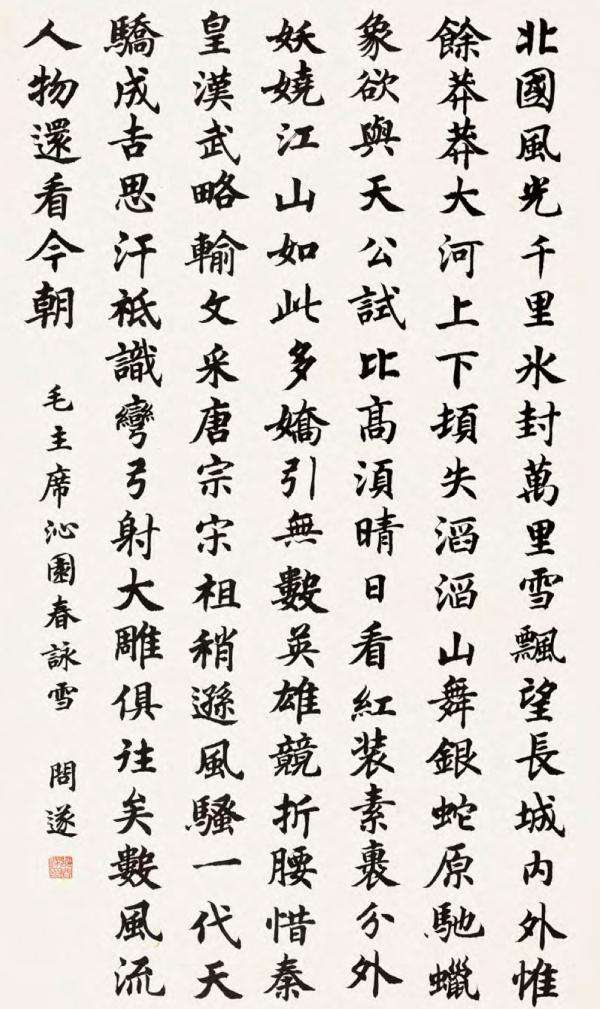 北國風光千里氷封萬里雪飄望長城内外惟
餘莽莽大河上下頓失滔滔山舞銀蛇原馳蠟
象欲與天公試比高須晴日看紅装素裹分外
妖嬈江山如此多嬌引無數英雄競折腰惜秦
皇漢武略輸文采唐宗宋祖稍遜風騷一代天
驕成吉思汗祗識彎弓射大雕俱往矣數風流
人物還看今朝 毛主席沁園春詠雪 遂